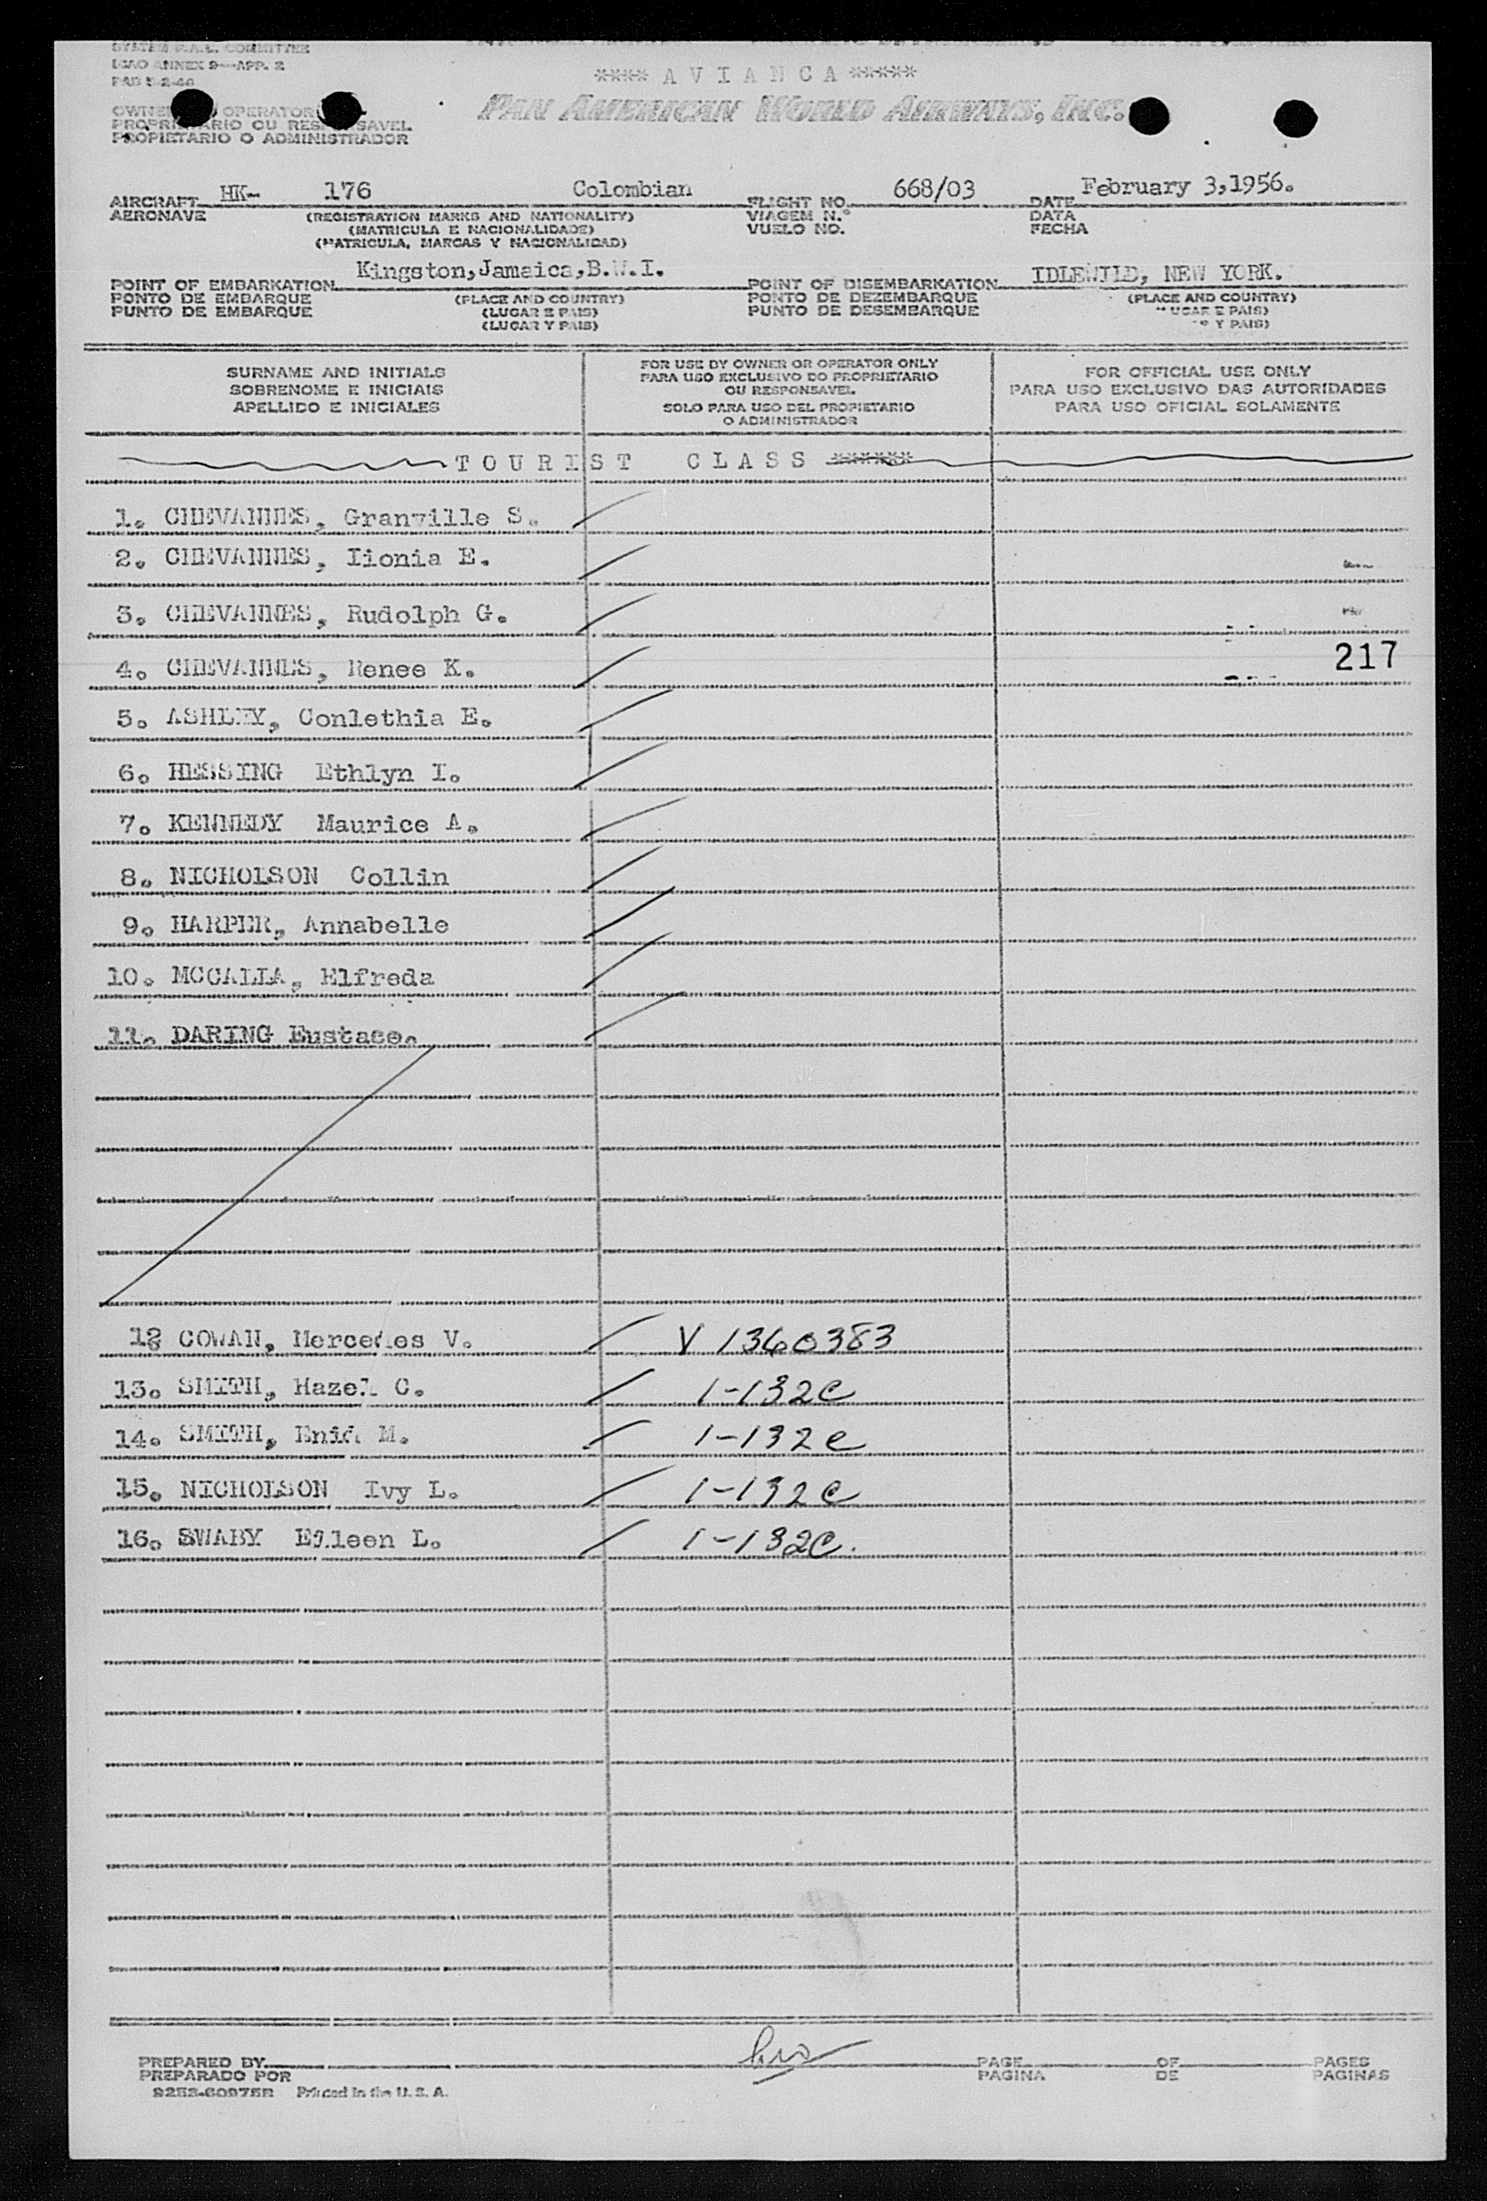 SYSTEM F.A.L. COMMITTEE
ICAO ANNEX 9—APP. 2
PAB 5-2-46
**** A V I A N C A *****
PAN AMERICAN WORLD AIRWAYS, INC.
OPERATOR
PROPIETARIO O ADMINISTRADOR
AIRCRAFT HK- 176 Colombian FLIGHT NO. 668/03 DATE February 3,1956.
AERONAVE (REGISTRATION MARKS AND NATIONALITY) VIAGEM N.º DATA
(MATRICULA E NACIONALIDADE) VUELO NO. FECHA
(MATRICULA, MARCAS Y NACIONALIDAD)
POINT OF EMBARKATION Kingston,Jamaica,B.W.I. POINT OF DISEMBARKATION IDLEWILD, NEW YORK.
PONTO DE EMBARQUE (PLACE AND COUNTRY) PONTO DE DEZEMBARQUE (PLACE AND COUNTRY)
PUNTO DE EMBARQUE (LUGAR E PAIS) PUNTO DE DESEMBARQUE E PAIS)
(LUGAR Y PAIS) Y PAIS)
SURNAME AND INITIALS FOR USE BY OWNER OR OPERATOR ONLY FOR OFFICIAL USE ONLY
SOBRENOME E INICIAIS PARA USO EXCLUSIVO DO PROPRIETARIO PARA USO EXCLUSIVO DAS AUTORIDADES
OU RESPONSAVEL
APELLIDO E INICIALES SOLO PARA USO DEL PROPIETARIO PARA USO OFICIAL SOLAMENTE
O ADMINISTRADOR
T O U R I S T C L A S S ******
1. CHEVANNES, Granville S.
2. CHEVANNES, Iionia E.
3. CHEVANNES, Rudolph G.
4. CHEVANNES, Renee K. 217
5. ASHLEY, Conlethia E.
6. HESSING Ethlyn I.
7. KENNEDY Maurice A.
8. NICHOLSON Collin
9. HARPER, Annabelle
10. MCCALLA, Elfreda
11. DARING Eustace.
12 COWAN, Mercedes V. V 1360383
13. SMITH, Hazel C. 1-132C
14. SMITH, Enid M. 1-132C
15. NICHOLSON Ivy L. 1-132C
16. SWABY Eileen L. 1-132C.
PREPARED BY PAGE OF PAGES
PREPARADO POR PAGINA DE PAGINAS
Printed in the U. S. A.